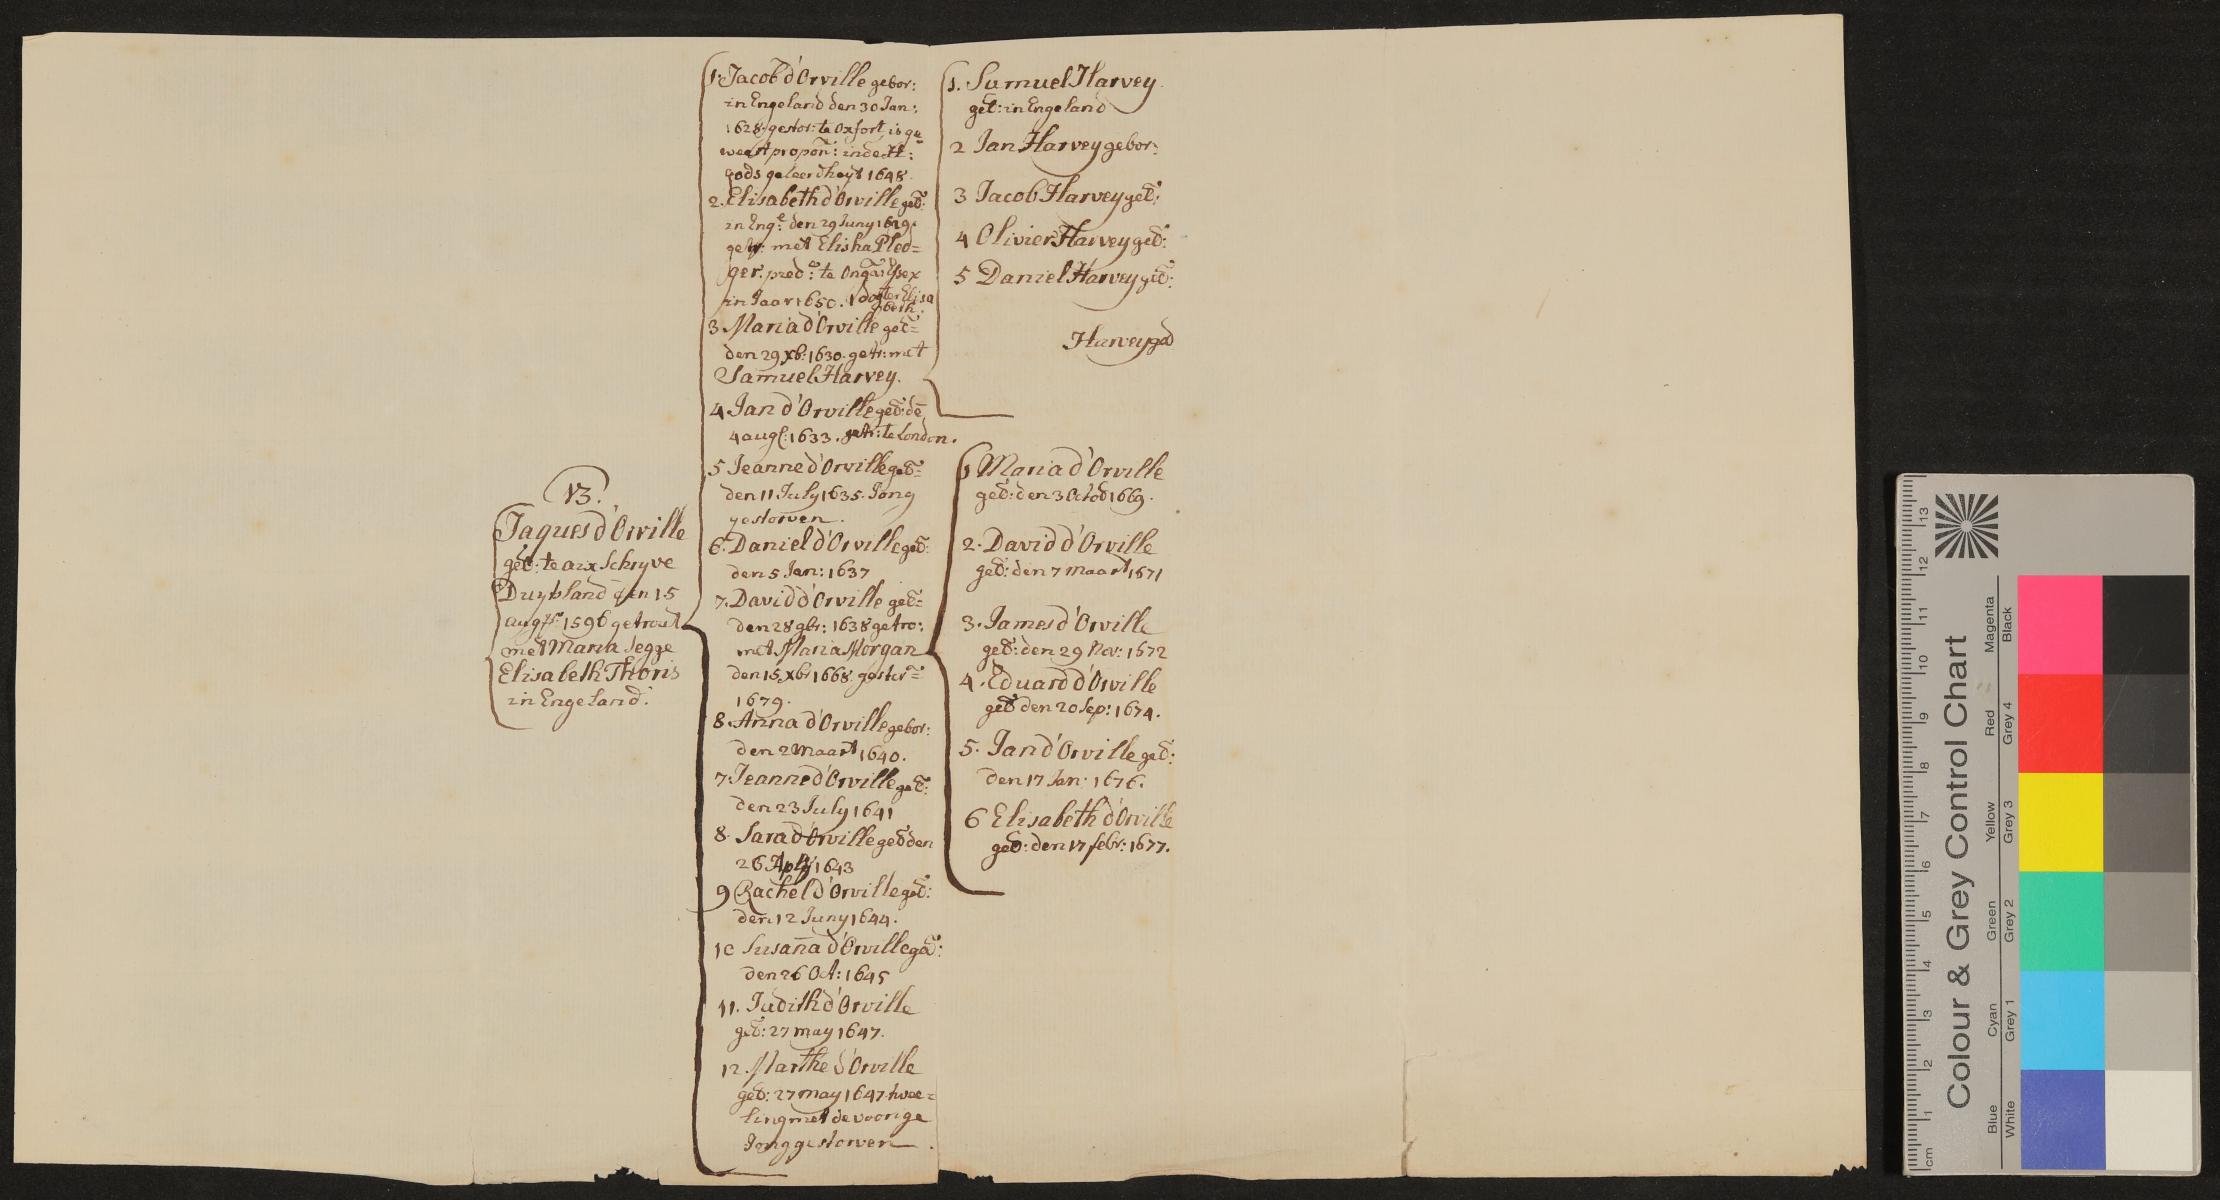 13.
Jaques d'Orville
geb: te aix Schyve
Duybland den 15
augs: 1596 getrout
met Maria Segge
Elisabeth Thoris
in Engeland.
1. Jacob d'Orville gebor:
in Engeland den 30 Jan:
1628. gestor: te Oxfort, is ge=
weest propon: in de H:
gods geleerdheyt 1648.
2. Elisabeth d'Orville geb:
in Eng: den 29 Juny 1629.
getr: met Elisha Pled=
ger. pred: te Ongar Essex
in Jaar 1650. 1 dogter Elisa
beth.
3 Maria d'Orville geb=
den 29 xb: 1630. getr: met
Samuel Harvey.
4 Jan d'Orville geb: de
4 augs: 1633. getr: te London.
5 Jeanne d'Orville geb=
den 11 July 1635. Jong
gestorven.
6. Daniel d'Orville geb:
den 5 Jan: 1637
7. David d'Orville geb=
den 28 9br: 1638 getro:
met Maria Morgan
den 15 xbr 1668. gestor=
1679.
8. Anna d'Orville gebor:
den 2 Maart 1640.
7. Jeanne d'Orville geb:
den 23 July 1641
8. Sara d'Orville geb den
26 1643
9 Rachel d'Orville geb:
den 12 Juny 1644.
10 Susaña d'Orville geb:
den 26 Oct: 1645
11. Judith d'Orville
geb: 27 may 1647.
12. Marthe d'Orville
geb: 27 may 1647. twee=
ling met de voorige
Jong gestorven.
1. Samuel Harvey
geb: in Engeland
2 Jan Harvey gebor:
3 Jacob Harvey geb:
4 Olivier Harvey geb:
5 Daniel Harvey geb:
Harvey geb
1 Maria d'Orville
geb: den 3 Octob 1669.
2. David d'Orville
geb: den 7 Maart 1671
3. James d'Orville
geb: den 29 Nov: 1672
4. Eduard d'Orville
geb den 20 Sep: 1674.
5. Jan d'Orville geb:
den 17 Jan: 1676.
6 Elisabeth d'Orville
geb: den 17 febr: 1677.
Colour & Grey Control Chart
Blue Cyan Green Yellow Red Magenta
White Grey 1 Grey 2 Grey 3 Grey 4 Black
cm 1 2 3 4 5 6 7 8 9 10 11 12 13